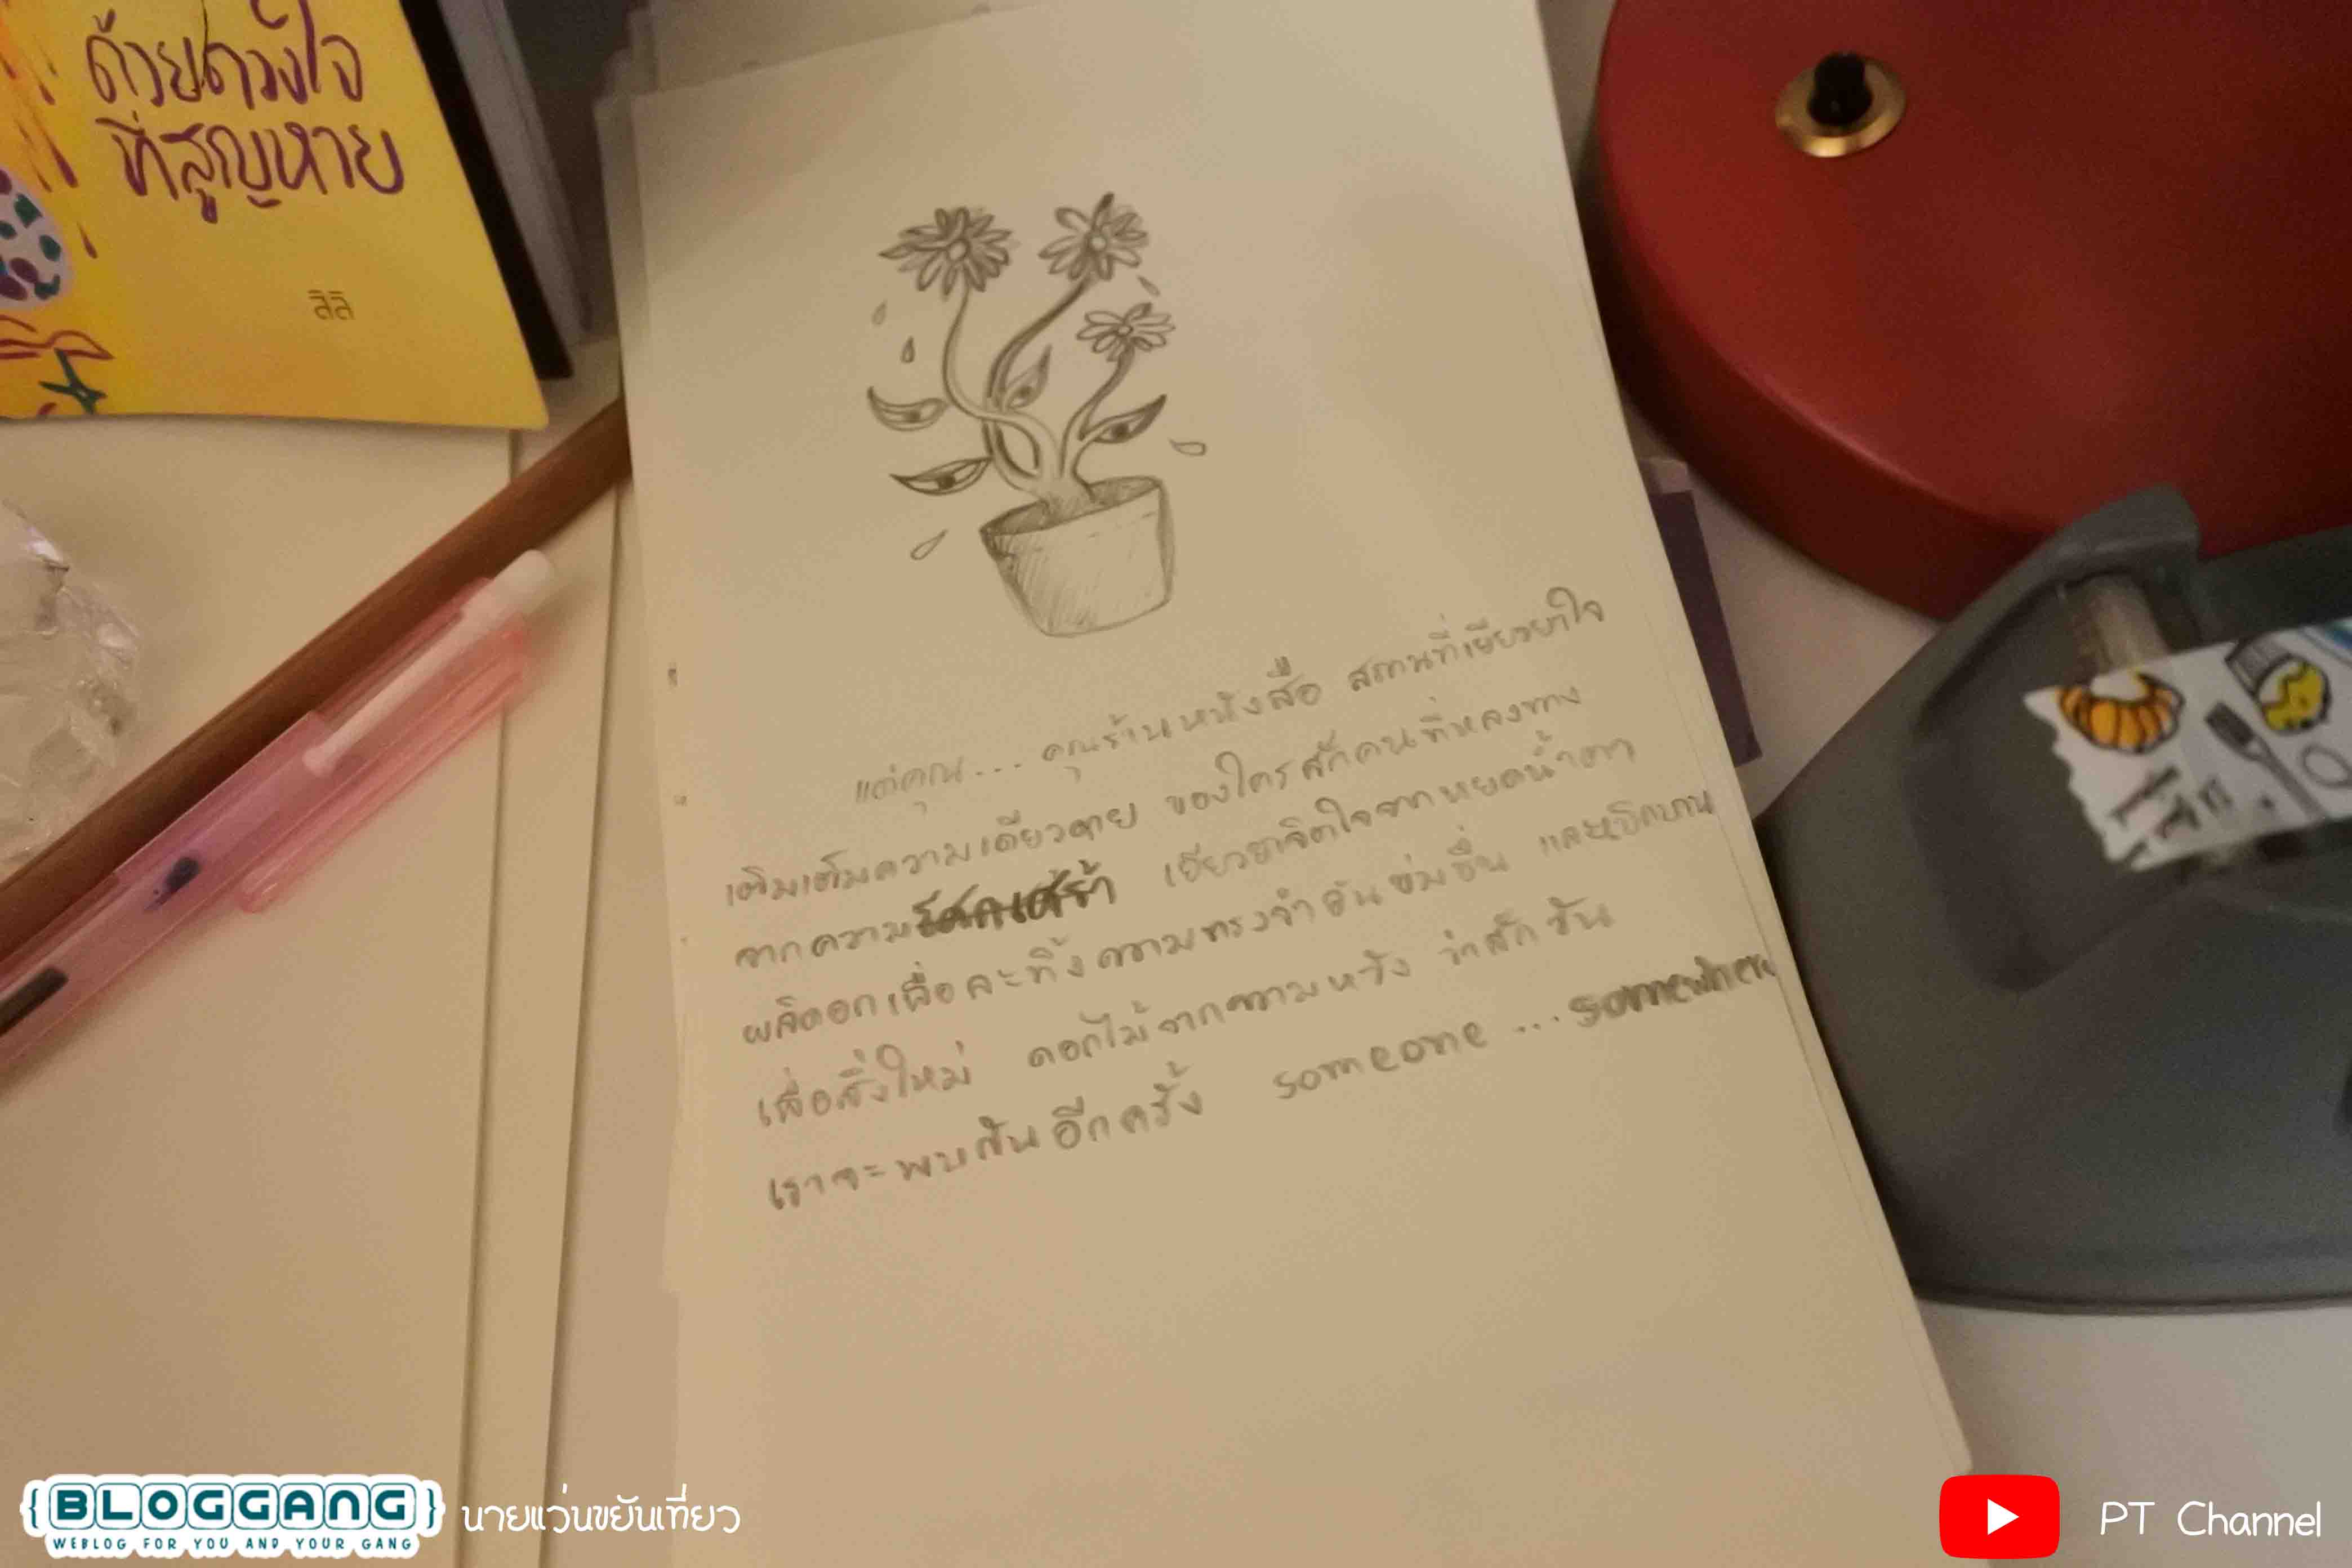 ด้วยดวงใจ
ที่สูญหาย
สิลิ
แต่คุณ... คุณร้านหนังสือ สถานที่เยียวยาใจ
เติมเต็มความเดียวดาย ของใครสักคนที่หลงทาง
จากความโศกเศร้า เยียวยาจิตใจจากหยดน้ำตา
ผลิดอกเพื่อละทิ้งความทรงจำอันขมขื่น และเบิกบาน
เพื่อสิ่งใหม่ ดอกไม้จากความหวัง ว่าสักวัน
เราจะพบกันอีกครั้ง someone ... somewhere
{BLOGGANG} นายแว่นขยันเที่ยว
WEBLOG FOR YOU AND YOUR GANG
PT Channel